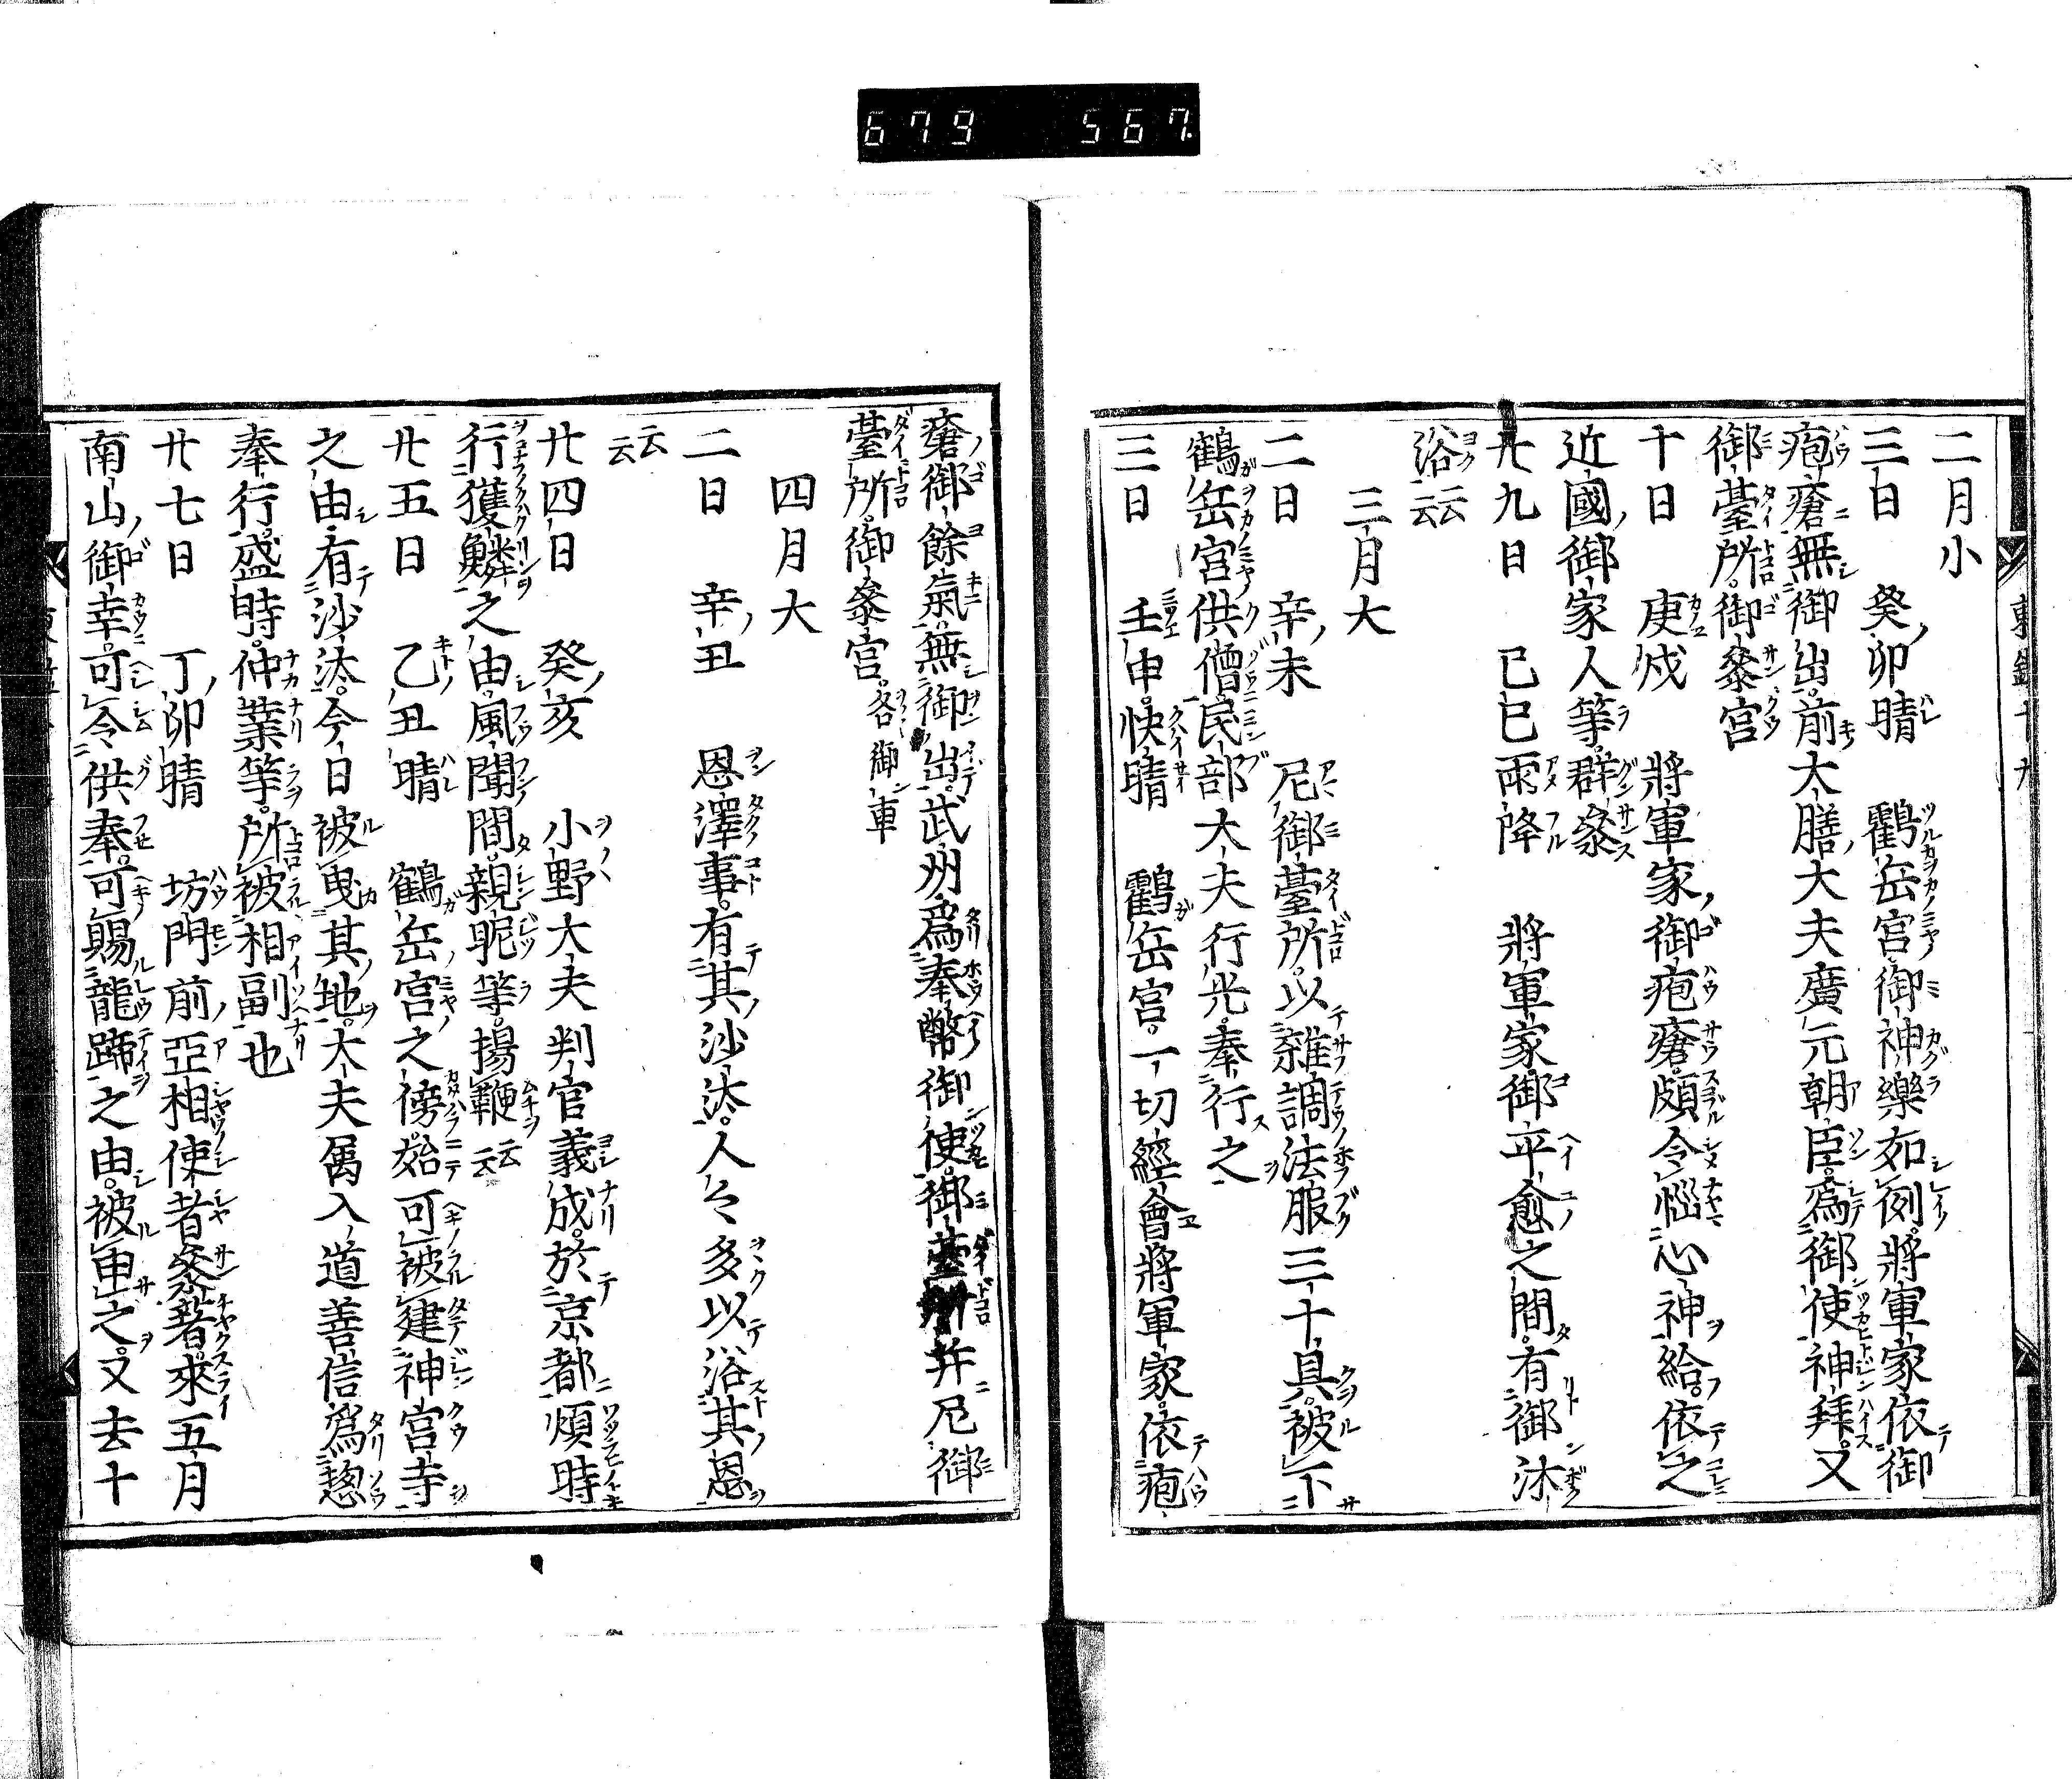 679 567
二月小
三日 癸卯晴 鶴岳宮御神樂如例。將軍家依御
疱瘡無御出。前大膳大夫廣元朝臣。爲御使神拜。又
御臺所。御參宮
十日 庚戌 將軍家御疱瘡。頗令惱心神給。依之
近國御家人等。群參
廿九日 己巳雨降 將軍家御平愈之間。有御沐
浴云云
三月大
二日 辛未 尼御臺所。以雜調法服三十具。被下
鶴岳宮供僧。民部大夫行光。奉行之
三日 壬申。快晴 鶴岳宮。一切經會將軍家。依疱
瘡御餘氣。無御出。武州爲奉幣御使。御臺所并尼御
臺所。御參宮。各御車
四月大
二日 辛丑 恩澤事。有其沙汰。人々多以浴其恩
云云
廿四日 癸亥 小野大夫判官義成。於京都煩時
行獲麟之由。風聞間。親昵等。揚鞭云云
廿五日 乙丑晴 鶴岳宮之傍。始可被建神宮寺
之由。有沙汰。今日被曳其地。大夫屬入道善信爲惣
奉行。盛時。仲業等。所被相副也
廿七日 丁卯晴 坊門前亞相使者參著。來五月
南山御幸。可令供奉。可賜龍蹄之由。被申之。又去十